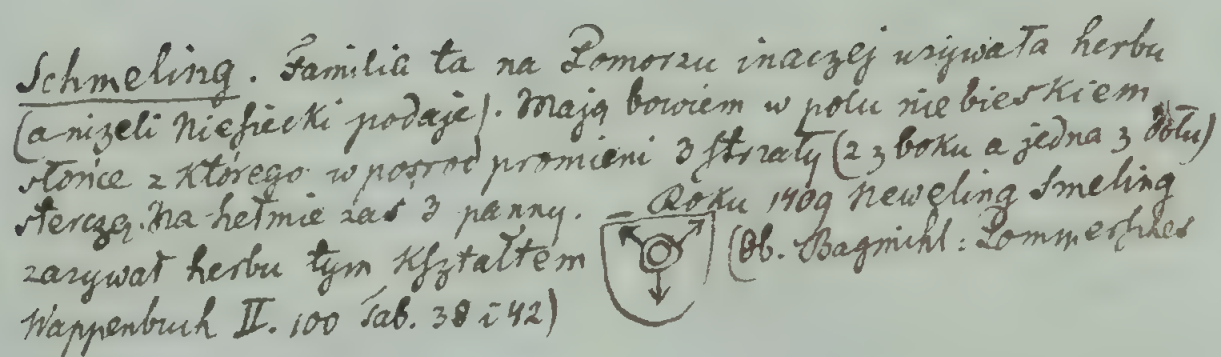 Schmeling. Familia ta na Pomorzu inaczej używała herbu
(aniżeli Niesiecki podaje). Mają bowiem w polu niebieskiem
słońce z którego wpośrod promieni 3 strzały (2 z boku a jedna z dołu)
sterczą. Na hełmie zaś 3 panny. – Roku 1409 Neweling Smeling
zażywał herbu tym kształtem (Ob. Bagmihl: Pommersches
Wappenbuch II. 100 Tab. 38 i 42)